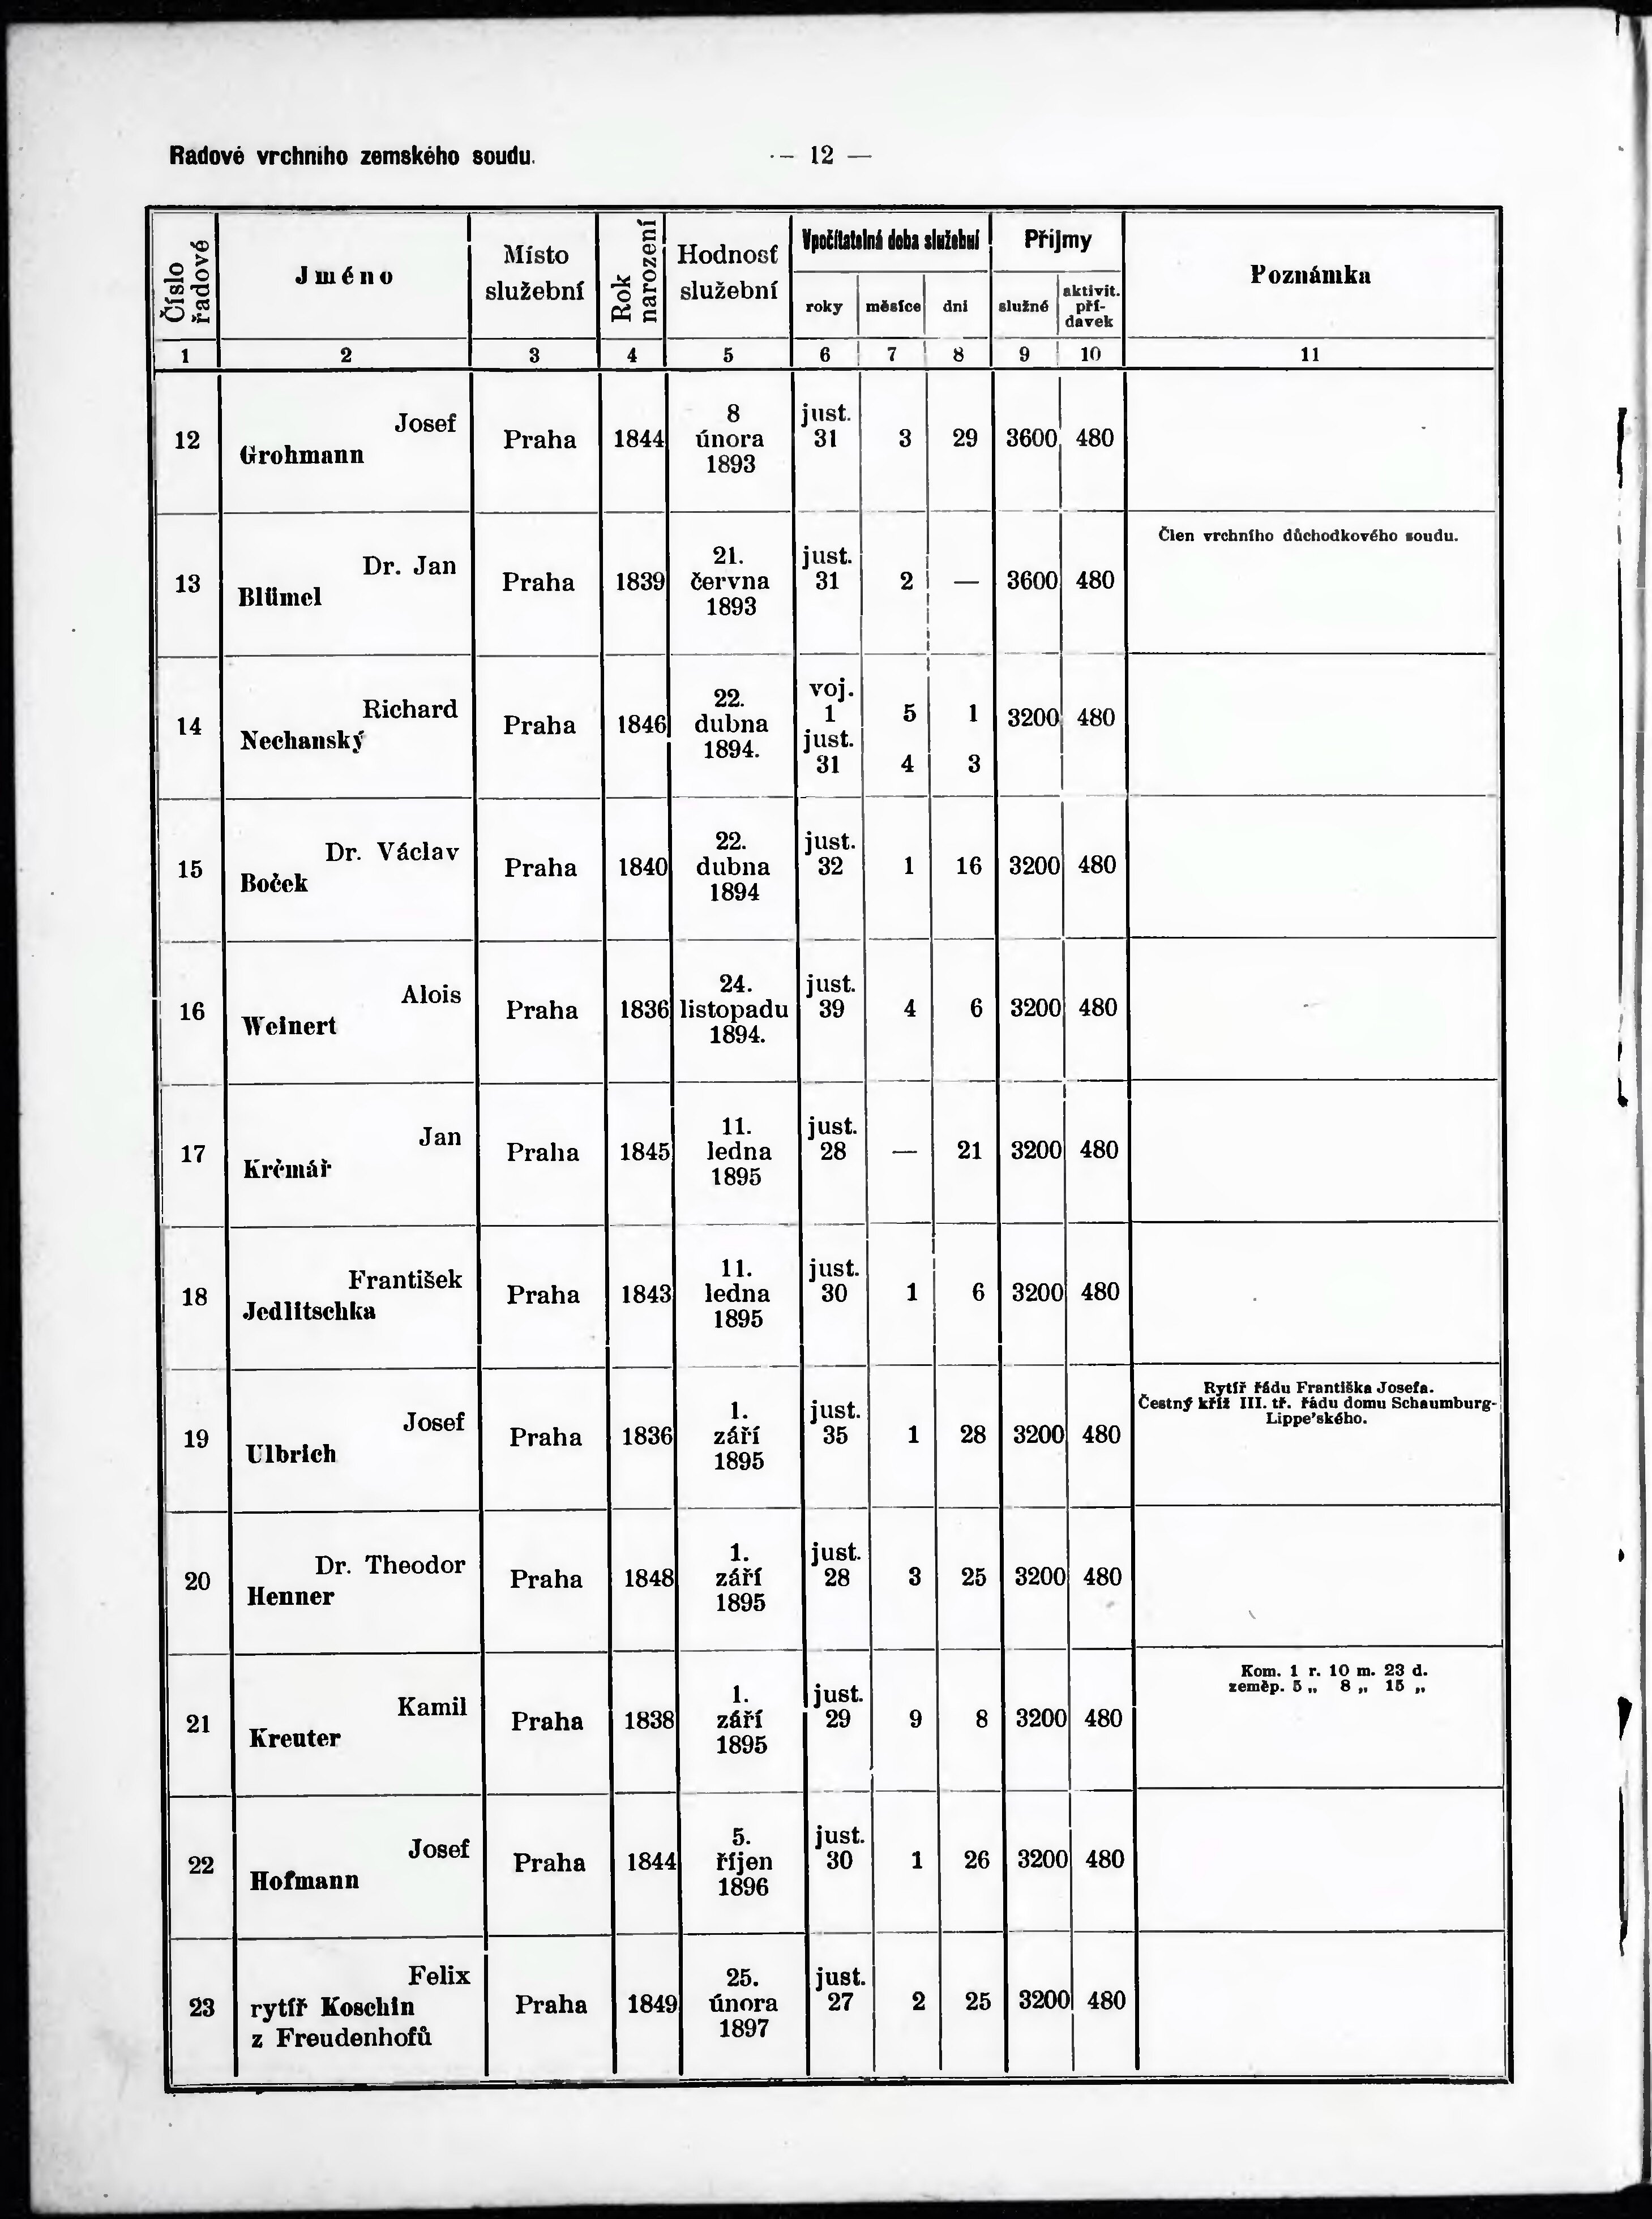 Radové vrchního zemského soudu.
— 12 —
Číslo řadové | Jméno | Místo služební | Rok narození | Hodnosť služební | Vpočítatelná doba služební | Příjmy | Poznámka
roky | měsíce | dni | služné | aktivit. pří-davek
1 | 2 | 3 | 4 | 5 | 6 | 7 | 8 | 9 | 10 | 11
12 | Josef Grohmann | Praha | 1844 | 8 února 1893 | just. 31 | 3 | 29 | 3600 | 480
13 | Dr. Jan Blümel | Praha | 1839 | 21. června 1893 | just. 31 | 2 | — | 3600 | 480 | Člen vrchního důchodkového soudu.
14 | Richard Nechanský | Praha | 1846 | 22. dubna 1894. | voj. 1 | 5 | 1 | 3200 | 480
just. 31 | 4 | 3
15 | Dr. Václav Boček | Praha | 1840 | 22. dubna 1894 | just. 32 | 1 | 16 | 3200 | 480
16 | Alois Weinert | Praha | 1836 | 24. listopadu 1894. | just. 39 | 4 | 6 | 3200 | 480
17 | Jan Krčmář | Praha | 1845 | 11. ledna 1895 | just. 28 | — | 21 | 3200 | 480
18 | František Jedlitschka | Praha | 1843 | 11. ledna 1895 | just. 30 | 1 | 6 | 3200 | 480
19 | Josef Ulbrich | Praha | 1836 | 1. září 1895 | just. 35 | 1 | 28 | 3200 | 480 | Rytíř řádu Františka Josefa. Čestný kříž III. tř. řádu domu Schaumburg-Lippe'ského.
20 | Dr. Theodor Henner | Praha | 1848 | 1. září 1895 | just. 28 | 3 | 25 | 3200 | 480
21 | Kamil Kreuter | Praha | 1838 | 1. září 1895 | just. 29 | 9 | 8 | 3200 | 480 | Kom. 1 r. 10 m. 23 d. zeměp. 5 „ 8 „ 15 „
22 | Josef Hofmann | Praha | 1844 | 5. říjen 1896 | just. 30 | 1 | 26 | 3200 | 480
23 | Felix rytíř Koschin z Freudenhofů | Praha | 1849 | 25. února 1897 | just. 27 | 2 | 25 | 3200 | 480